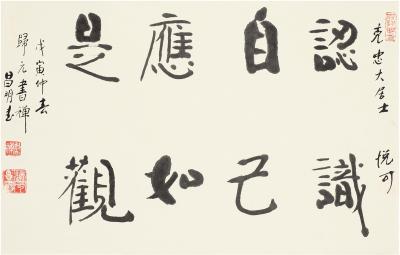 克忠大居士 悦可
認識
自己
應如
是觀
戊寅仲春
歸元書禪
昌明書